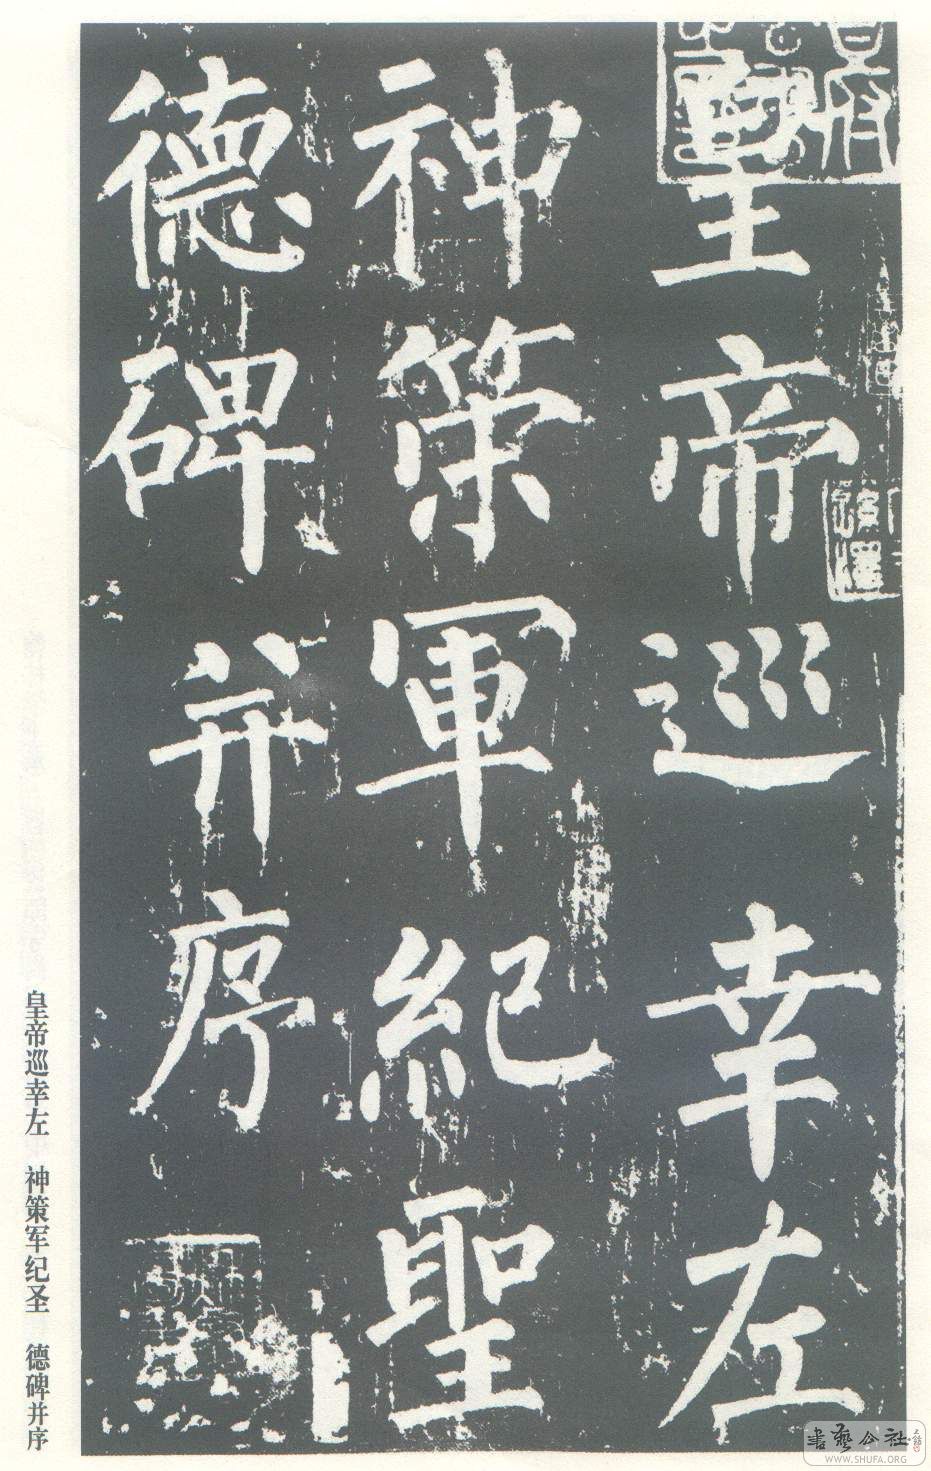 皇帝巡幸左
神策軍紀聖
德碑并序
皇帝巡幸左 神策军纪圣 德碑并序
書藝公社
WWW.SHUFA.ORG